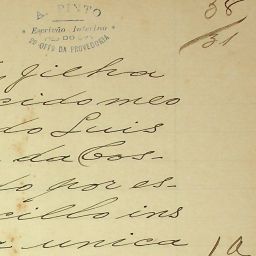 38
A. PINTO
Escrivão Interino
DO
2º OFFº DA PROVEDORIA
31
filha
cido meo
do Luis
da Cos-
to por es-
cillo ins
unica
1a